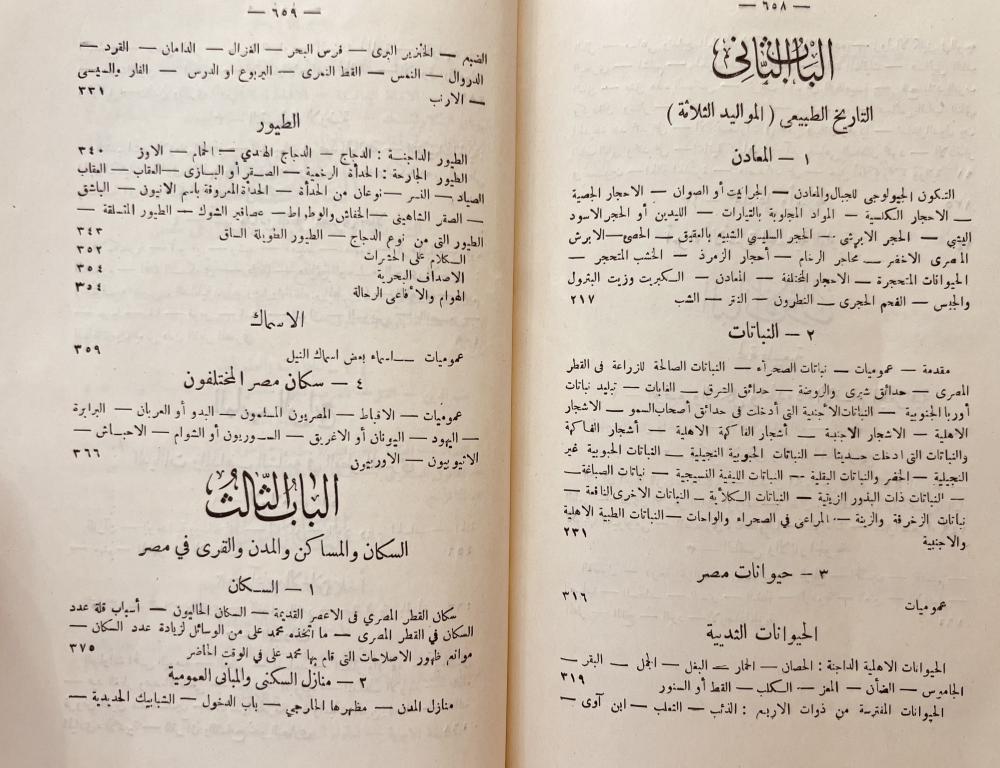 — ٦٥٨ —
الباب الثاني
التاريخ الطبيعى ( المواليد الثلاثة )
١ — المعادن
التكون الجيولوجى للجبال والمعادن — الجرانيت أو الصوان — الاحجار الجصية
— الاحجار الكلسية — المواد المجلوبة بالتيارات — الليدين أو الحجر الاسود
اليشبي — الحجر الابرشى — الحجر السليسي الشبيه بالعقيق — الحصى — الابرش
المصرى الاخضر — محاجر الرخام — أحجار الزمرذ — الخشب المتحجر —
الحيوانات المتحجرة — الاحجار المختلفة — المعادن — الكبريت وزيت البترول
والجبس — الفحم الحجرى — النطرون — النتر — الشب ٢١٧
٢ — النباتات
مقدمة — عموميات — نباتات الصحراء — النباتات الصالحة للزراعة فى القطر
المصرى — حدائق شبرى والروضة — حدائق الشرق — الغابات — تبليد نباتات
أوربا الجنوبية — النباتات الأجنبية التى أدخلت فى حدائق أصحاب السمو — الاشجار
الاهلية — الاشجار الاجنبية — أشجار الفاكهة الاهلية — أشجار الفاكهة
والنباتات التى ادخلت حديثا — النباتات الحبوبية النجيلية — النباتات الحبوبية غير
النجيلية — الخضر والنباتات البقلية — النباتات الليفية النسيجية — نباتات الصباغة —
— النباتات ذات البذور الزيتية — النباتات الكلأية — النباتات الاخرى النافعة —
نباتات الزخرفة والزينة — المراعى فى الصحراء والواحات — النباتات الطبية الاهلية
والاجنبية ٢٣١
٣ — حيوانات مصر
عموميات ٣١٦
الحيوانات الثديية
الحيوانات الاهلية الداجنة : الحصان — الحمار — البغل — الجمل — البقر —
الجاموس — الضأن — المعز — الكلب — القط أو السنور ٣١٩
الحيوانات المفترسة من ذوات الاربع : الذئب — الثعلب — ابن آوى —
— ٦٥٩ —
الضبع — الخنزير البرى — فرس البحر — الغزال — الدامان — القرد —
الدروال — النمس — القط النمرى — اليربوع او الدرس — الفار والسيسى
— الارنب ٣٣١
الطيور
الطيور الداجنة : الدجاج — الدجاج الهندي — الحمام — الاوز ٣٤٠
الطيور الجارحة : الحدأة الرخمية — الصقر أو البازى — العقاب — العقاب
الصياد — النسر — نوعان من الحدأة — الحدأة المعروفة باسم الانيون — الباشق
— الصقر الشاهينى — الخفاش والوطواط — عصافير الشوك — الطيور المتسلقة —
الطيور التى من نوع الدجاج — الطيور الطويلة الساق ٣٤٣
الكلام على الحشرات ٣٥٢
الاصداف البحرية ٣٥٤
الهوام والأفاعى الرحالة ٣٥٤
الاسماك
عموميات — اسماء بعض اسماك النيل ٣٥٩
٤ — سكان مصر المختلفون
عموميات — الاقباط — المصريون المسلمون — البدو أو العربان — البرابرة
— اليهود — اليونان أو الاغريق — السوريون أو الشوام — الاحباش —
الاثيوبيون — الاوربيون ٣٦٦
الباب الثالث
السكان والمساكن والمدن والقرى في مصر
١ — السكان
سكان القطر المصري فى الاعصر القديمة — السكان الحاليون — أسباب قلة عدد
السكان في القطر المصرى — ما اتخذه محمد على من الوسائل لزيادة عدد السكان —
موانع ظهور الاصلاحات التى قام بها محمد على فى الوقت الحاضر ٣٧٥
٢ — منازل السكنى والمبانى العمومية
منازل المدن — مظهرها الخارجي — باب الدخول — الشبابيك الحديدية —